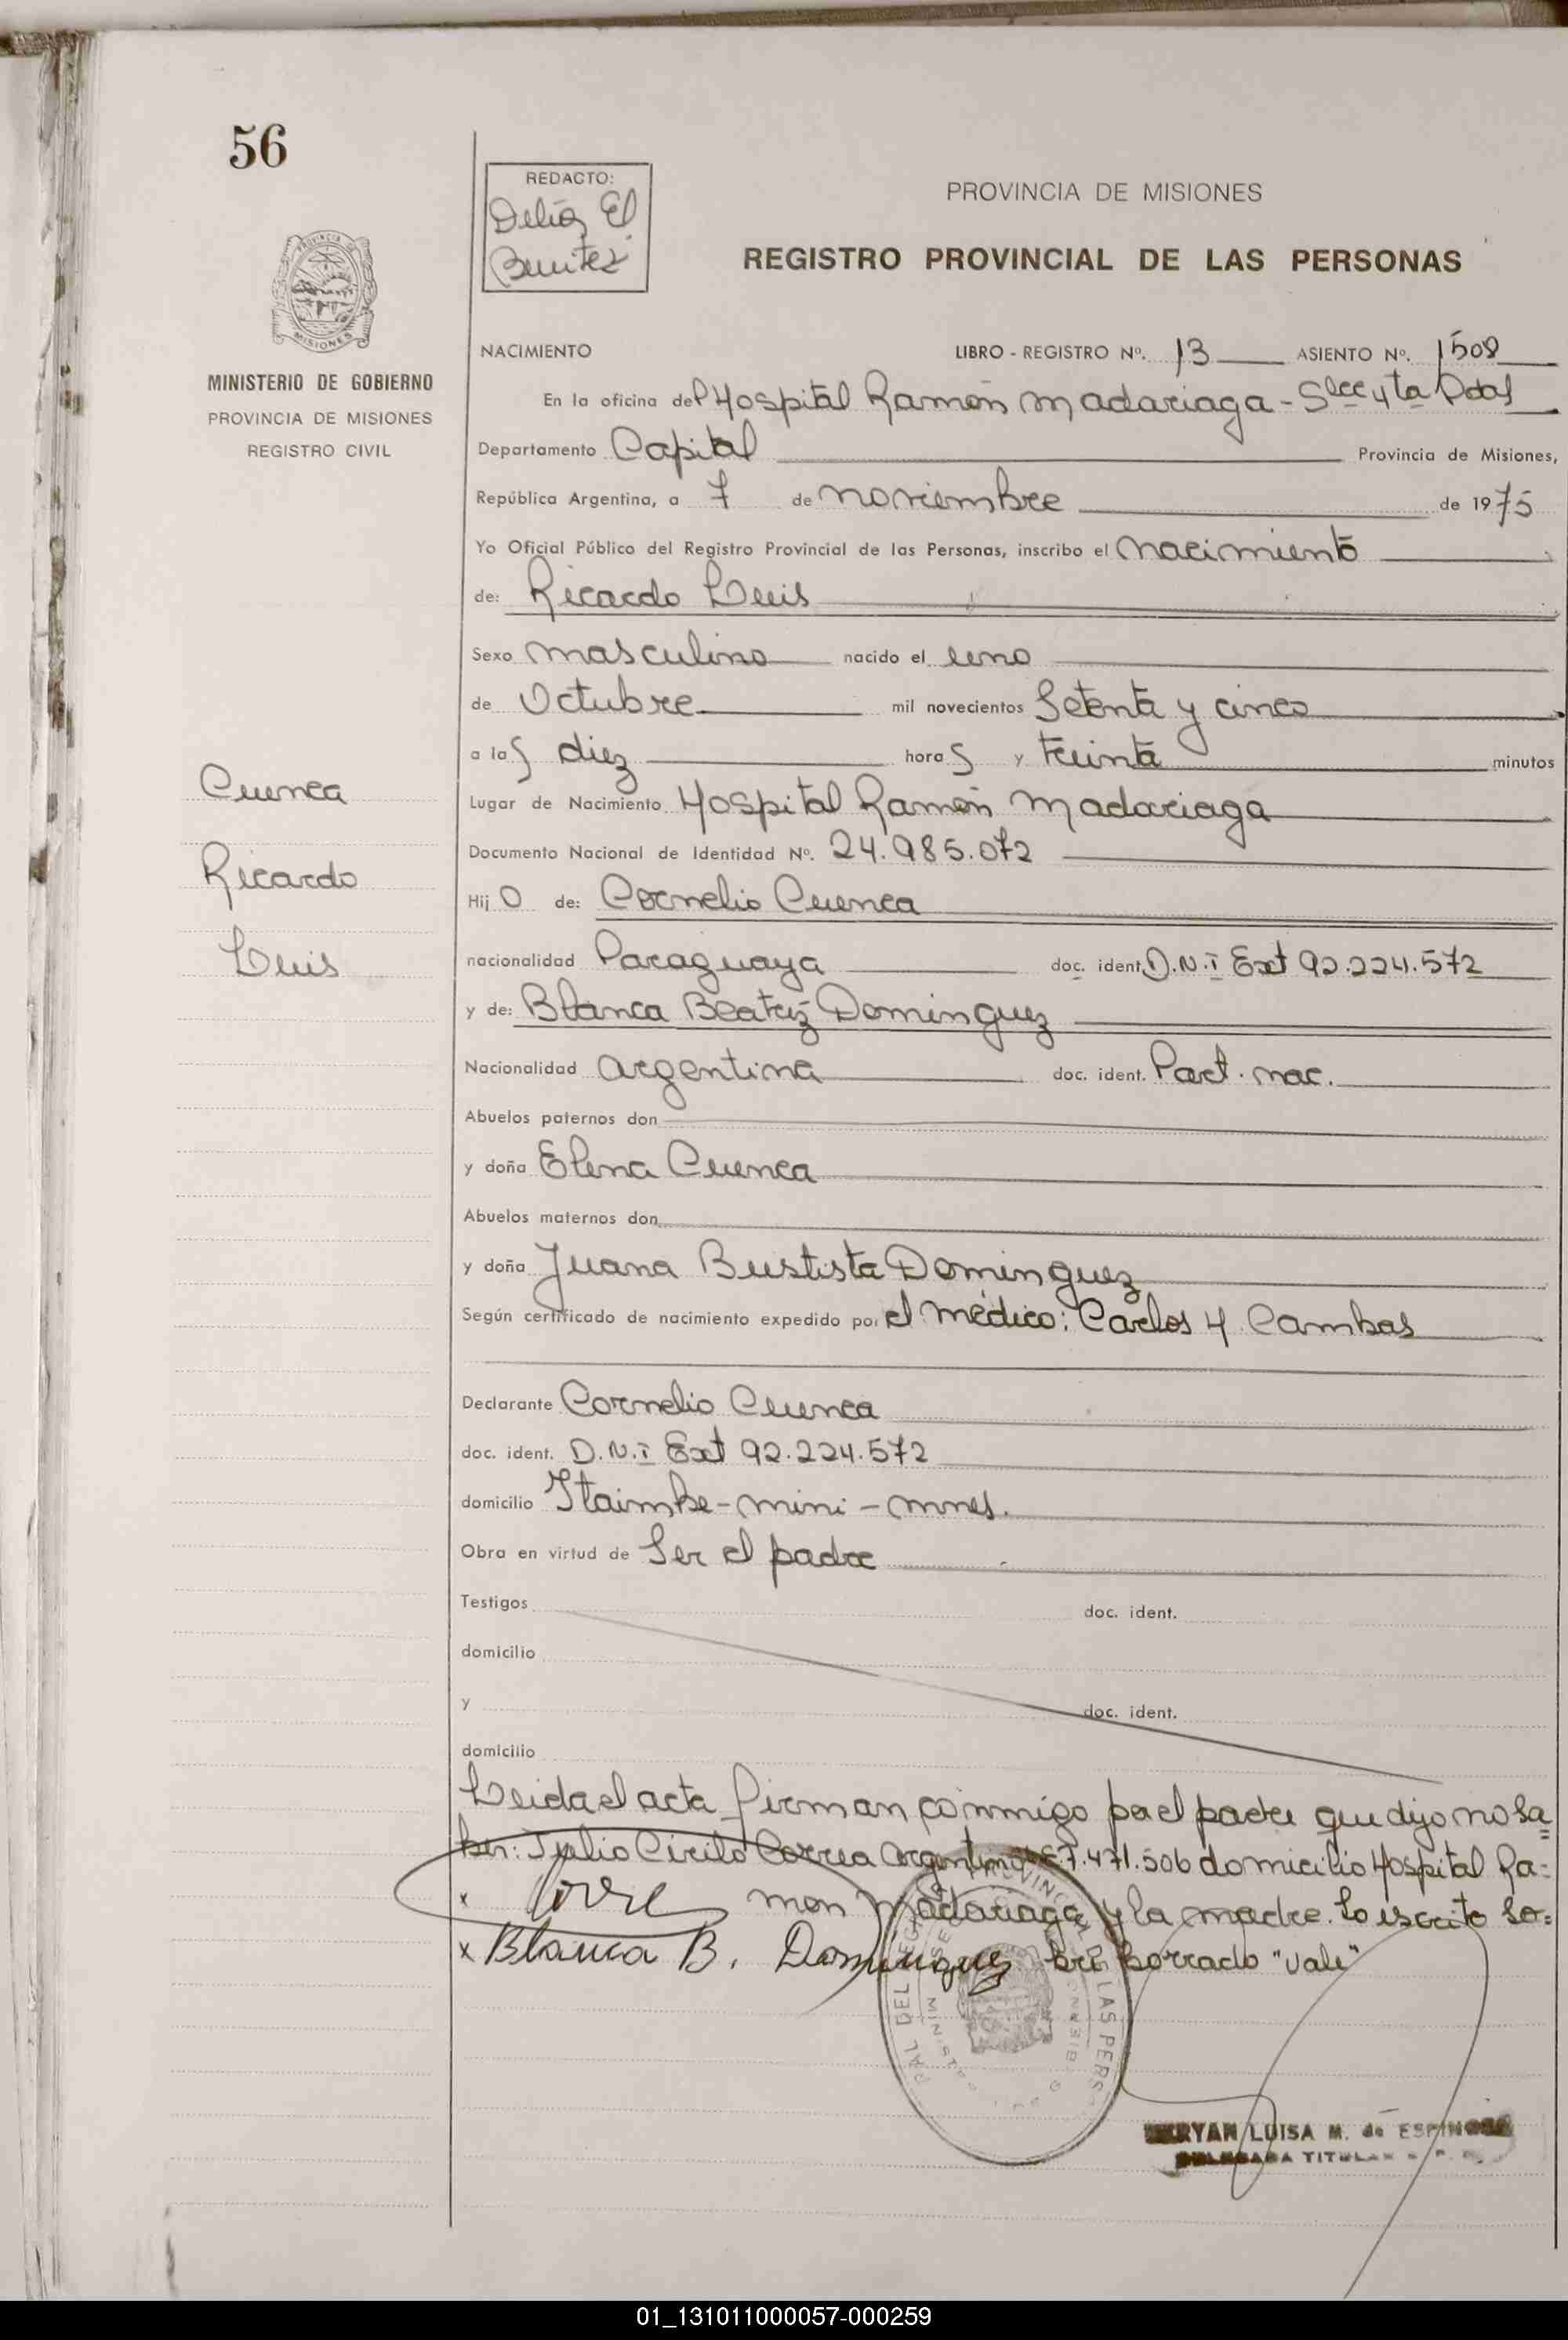 56
REDACTO:
Delia El
Benitez
PROVINCIA DE MISIONES
REGISTRO PROVINCIAL DE LAS PERSONAS
MISIONES
MINISTERIO DE GOBIERNO
PROVINCIA DE MISIONES
REGISTRO CIVIL
NACIMIENTO LIBRO - REGISTRO Nº. 13 ASIENTO Nº. 1508
En la oficina del Hospital Ramón Madariaga - Secc 4ta Pdas
Departamento Capital Provincia de Misiones,
República Argentina, a 7 de noviembre de 1975
Yo Oficial Público del Registro Provincial de las Personas, inscribo el nacimiento
de: Ricardo Luis
Sexo masculino nacido el uno
de Octubre mil novecientos Setenta y cinco
a las diez horas y treinta minutos
Lugar de Nacimiento Hospital Ramón Madariaga
Documento Nacional de Identidad Nº. 24.985.072
Hijo de: Cornelio Cuenca
nacionalidad Paraguaya doc. ident. D.N.I Ext 92.224.572
y de: Blanca Beatriz Dominguez
Nacionalidad argentina doc. ident. Part. nac.
Abuelos paternos don
y doña Elena Cuenca
Abuelos maternos don
y doña Juana Bustista Dominguez
Según certificado de nacimiento expedido por el médico: Carlos H Cambas
Declarante Cornelio Cuenca
doc. ident. D.N.I Ext 92.224.572
domicilio Itaimbe-mini-mnes.
Obra en virtud de Ser el padre
Testigos doc. ident.
domicilio
y doc. ident.
domicilio
Leida el acta firman conmigo por el padre que dijo no sa=
ber: Julio Cirilo Correa argentino 7.471.506 domicilio Hospital Ra=
x mon Madariaga y la madre. Lo escrito so=
x Blanca B. Dominguez bre borrado "vale"
Cuenca
Ricardo
Luis
LUISA M. de ESPINOSA
DELEGADA TITULAR
01_131011000057-000259